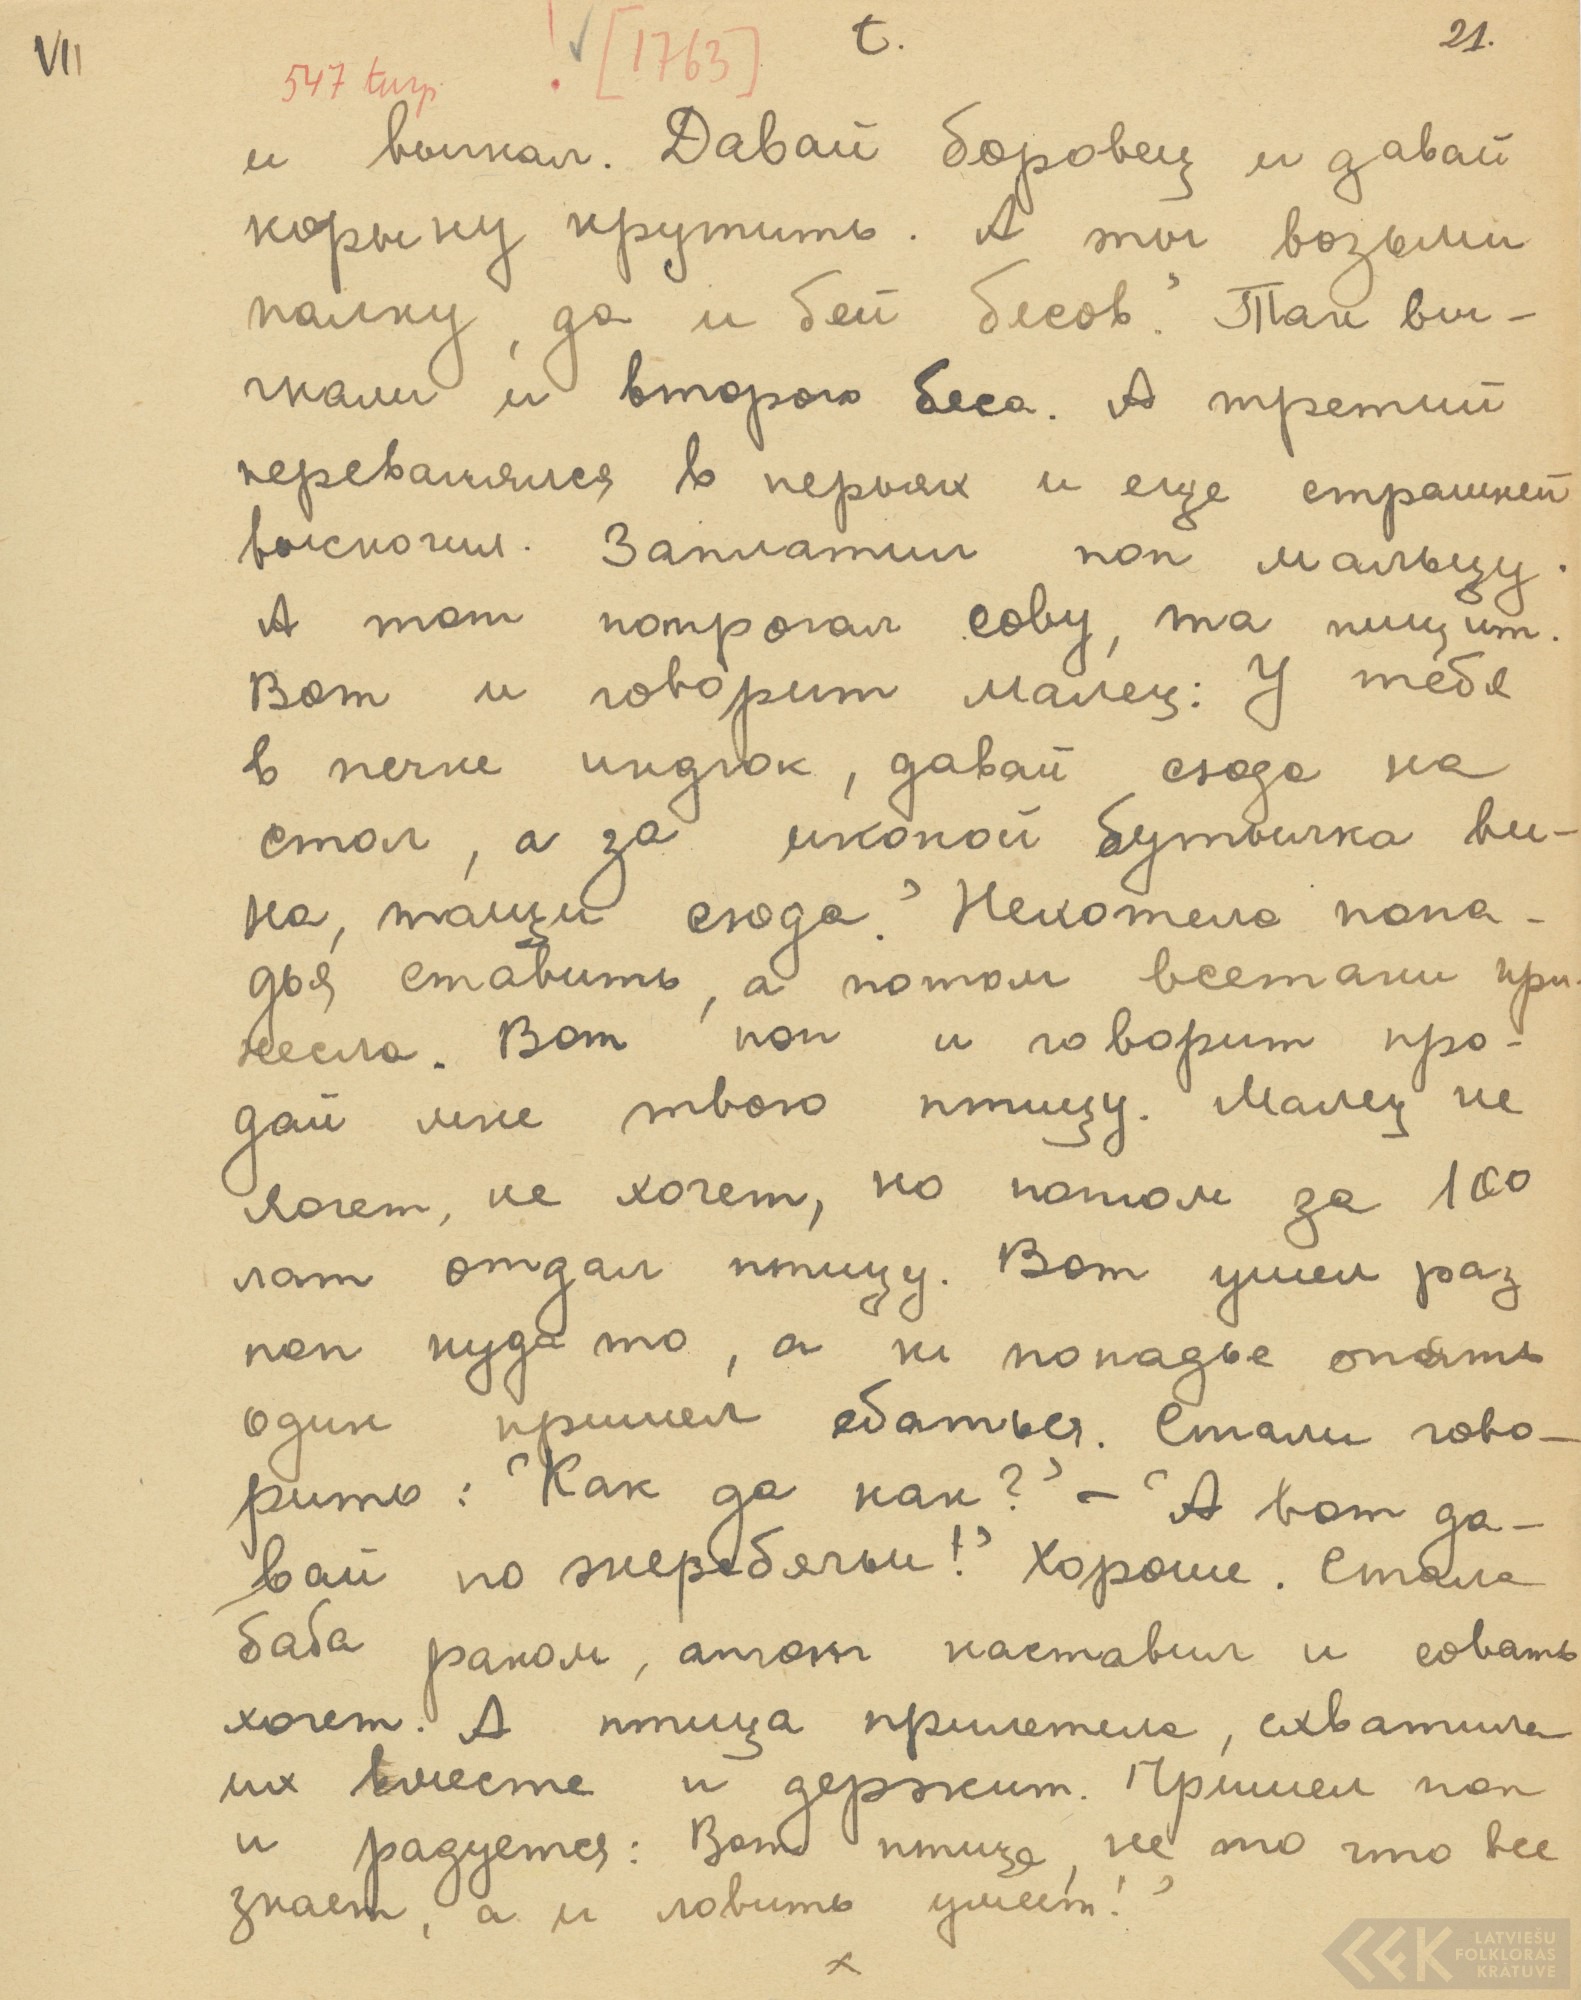 VII
t.
21.
547 turp.
! [1763]
и выгнал. Давай боровец и давай
корыну крутить. А ты возьми
палку, да и бей бесов.' Так вы-
гнали и второго беса. А третий
перевалялся в перьях и еще страшней
выскочил. Заплатил поп мальцу.
А тот потрогал сову, та пищит.
Вот и говорит малец: У тебя
в печке индюк, давай сюда на
стол, а за иконой бутылка ви-
на, тащи сюда.' Нехотела попа-
дья ставить, а потом всетаки при-
несла. Вот поп и говорит про-
дай мне твою птицу. Малец не
хочет, не хочет, но потом за 100
лат отдал птицу. Вот ушел раз
поп куда то, а к попадье опять
один пришел ебаться. Стали гово-
рить: 'Как да как?' – 'А вот да-
вай по жеребячьи!' Хорошо. Стала
баба раком, а наставил и совать
хочет. А птица прилетела, схватила
их вместе и держит. Пришел поп
и радуется: Вот птица, не то что все
знает, а и ловить умеет!'
x
LATVIEŠU
FOLKLORAS
KRĀTUVE